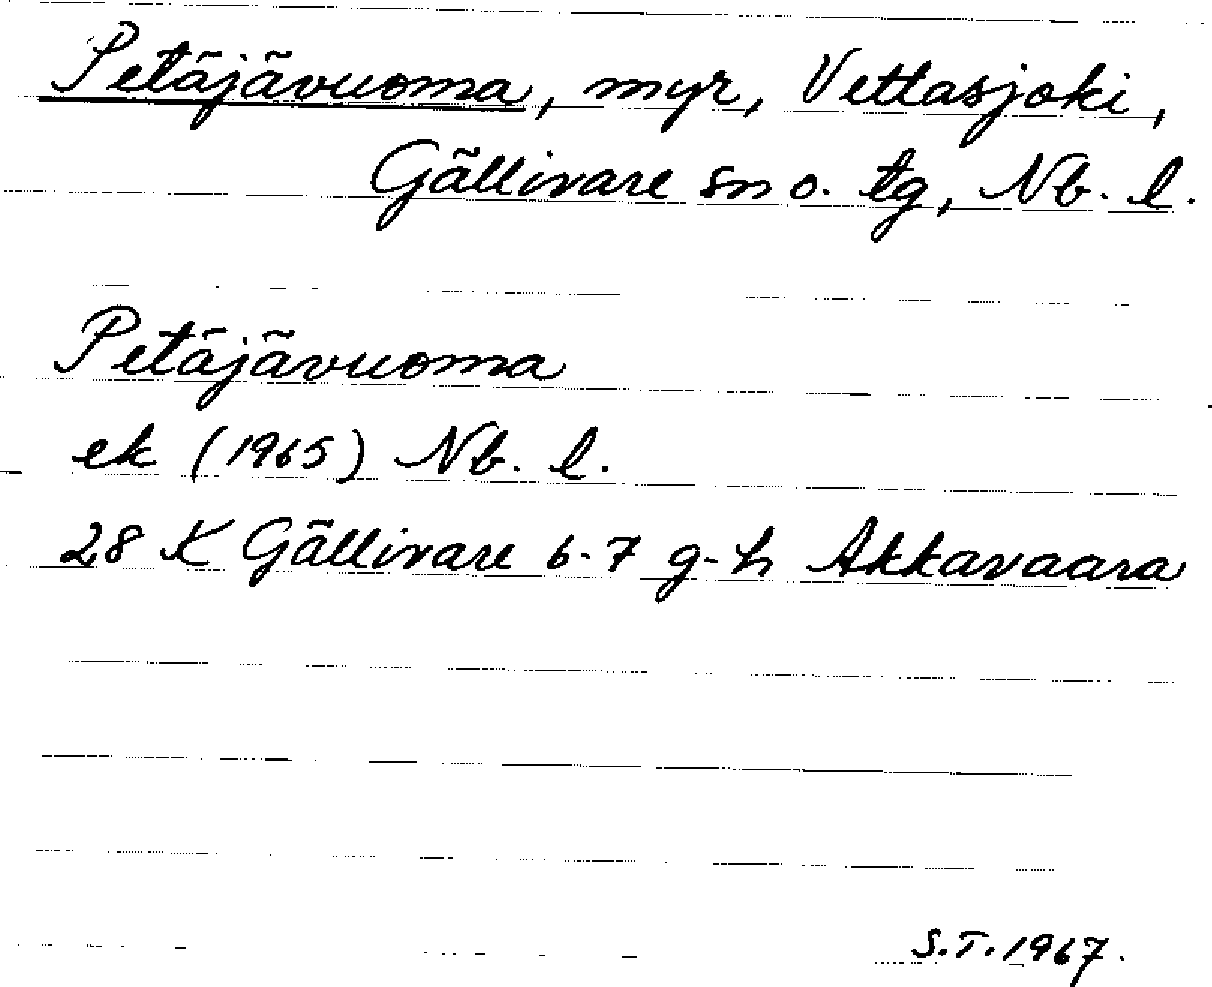 Petäjävuoma, myr, Vettasjoki,
Gällivare sn o. tg, Nb. l.
Petäjävuoma
ek (1965) Nb. l.
28 K Gällivare 6-7 g-h Akkavaara
S.T. 1967.